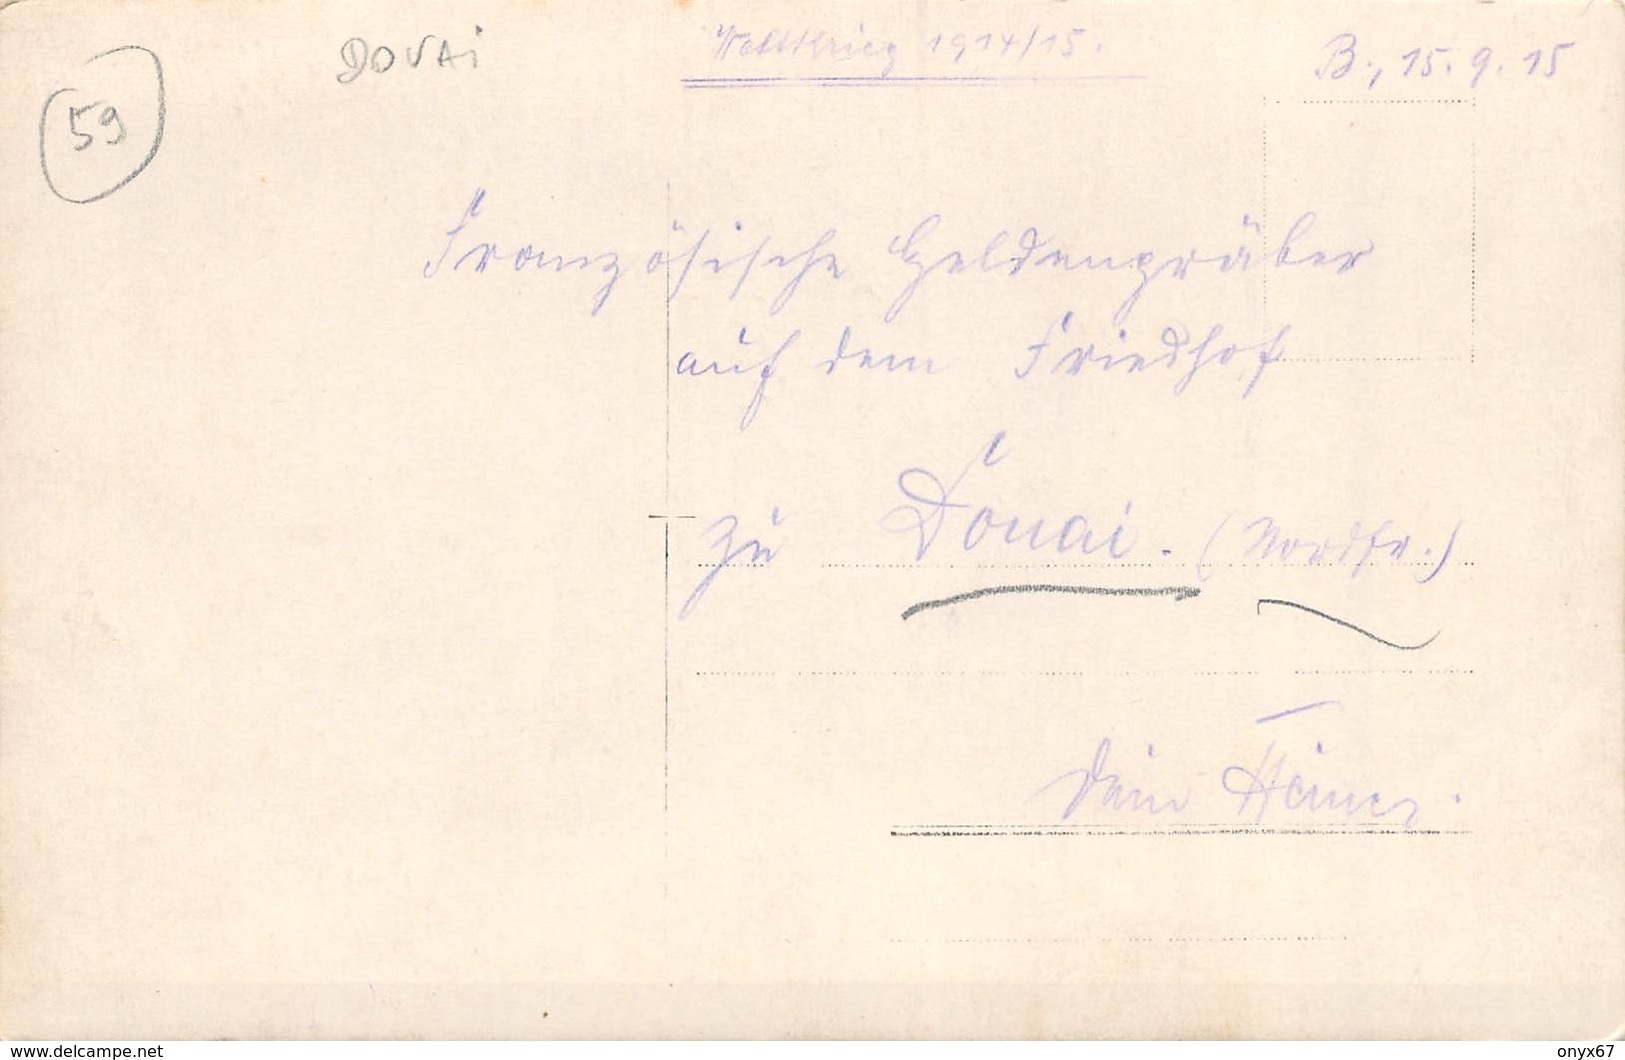 DOUAI
Weltkrieg 1914/15.
B., 15. 9. 15
59
Französische Heldengräber
auf dem Friedhof
zu Douai. (Nordfr.)
Dein
www.delcampe.net
onyx67